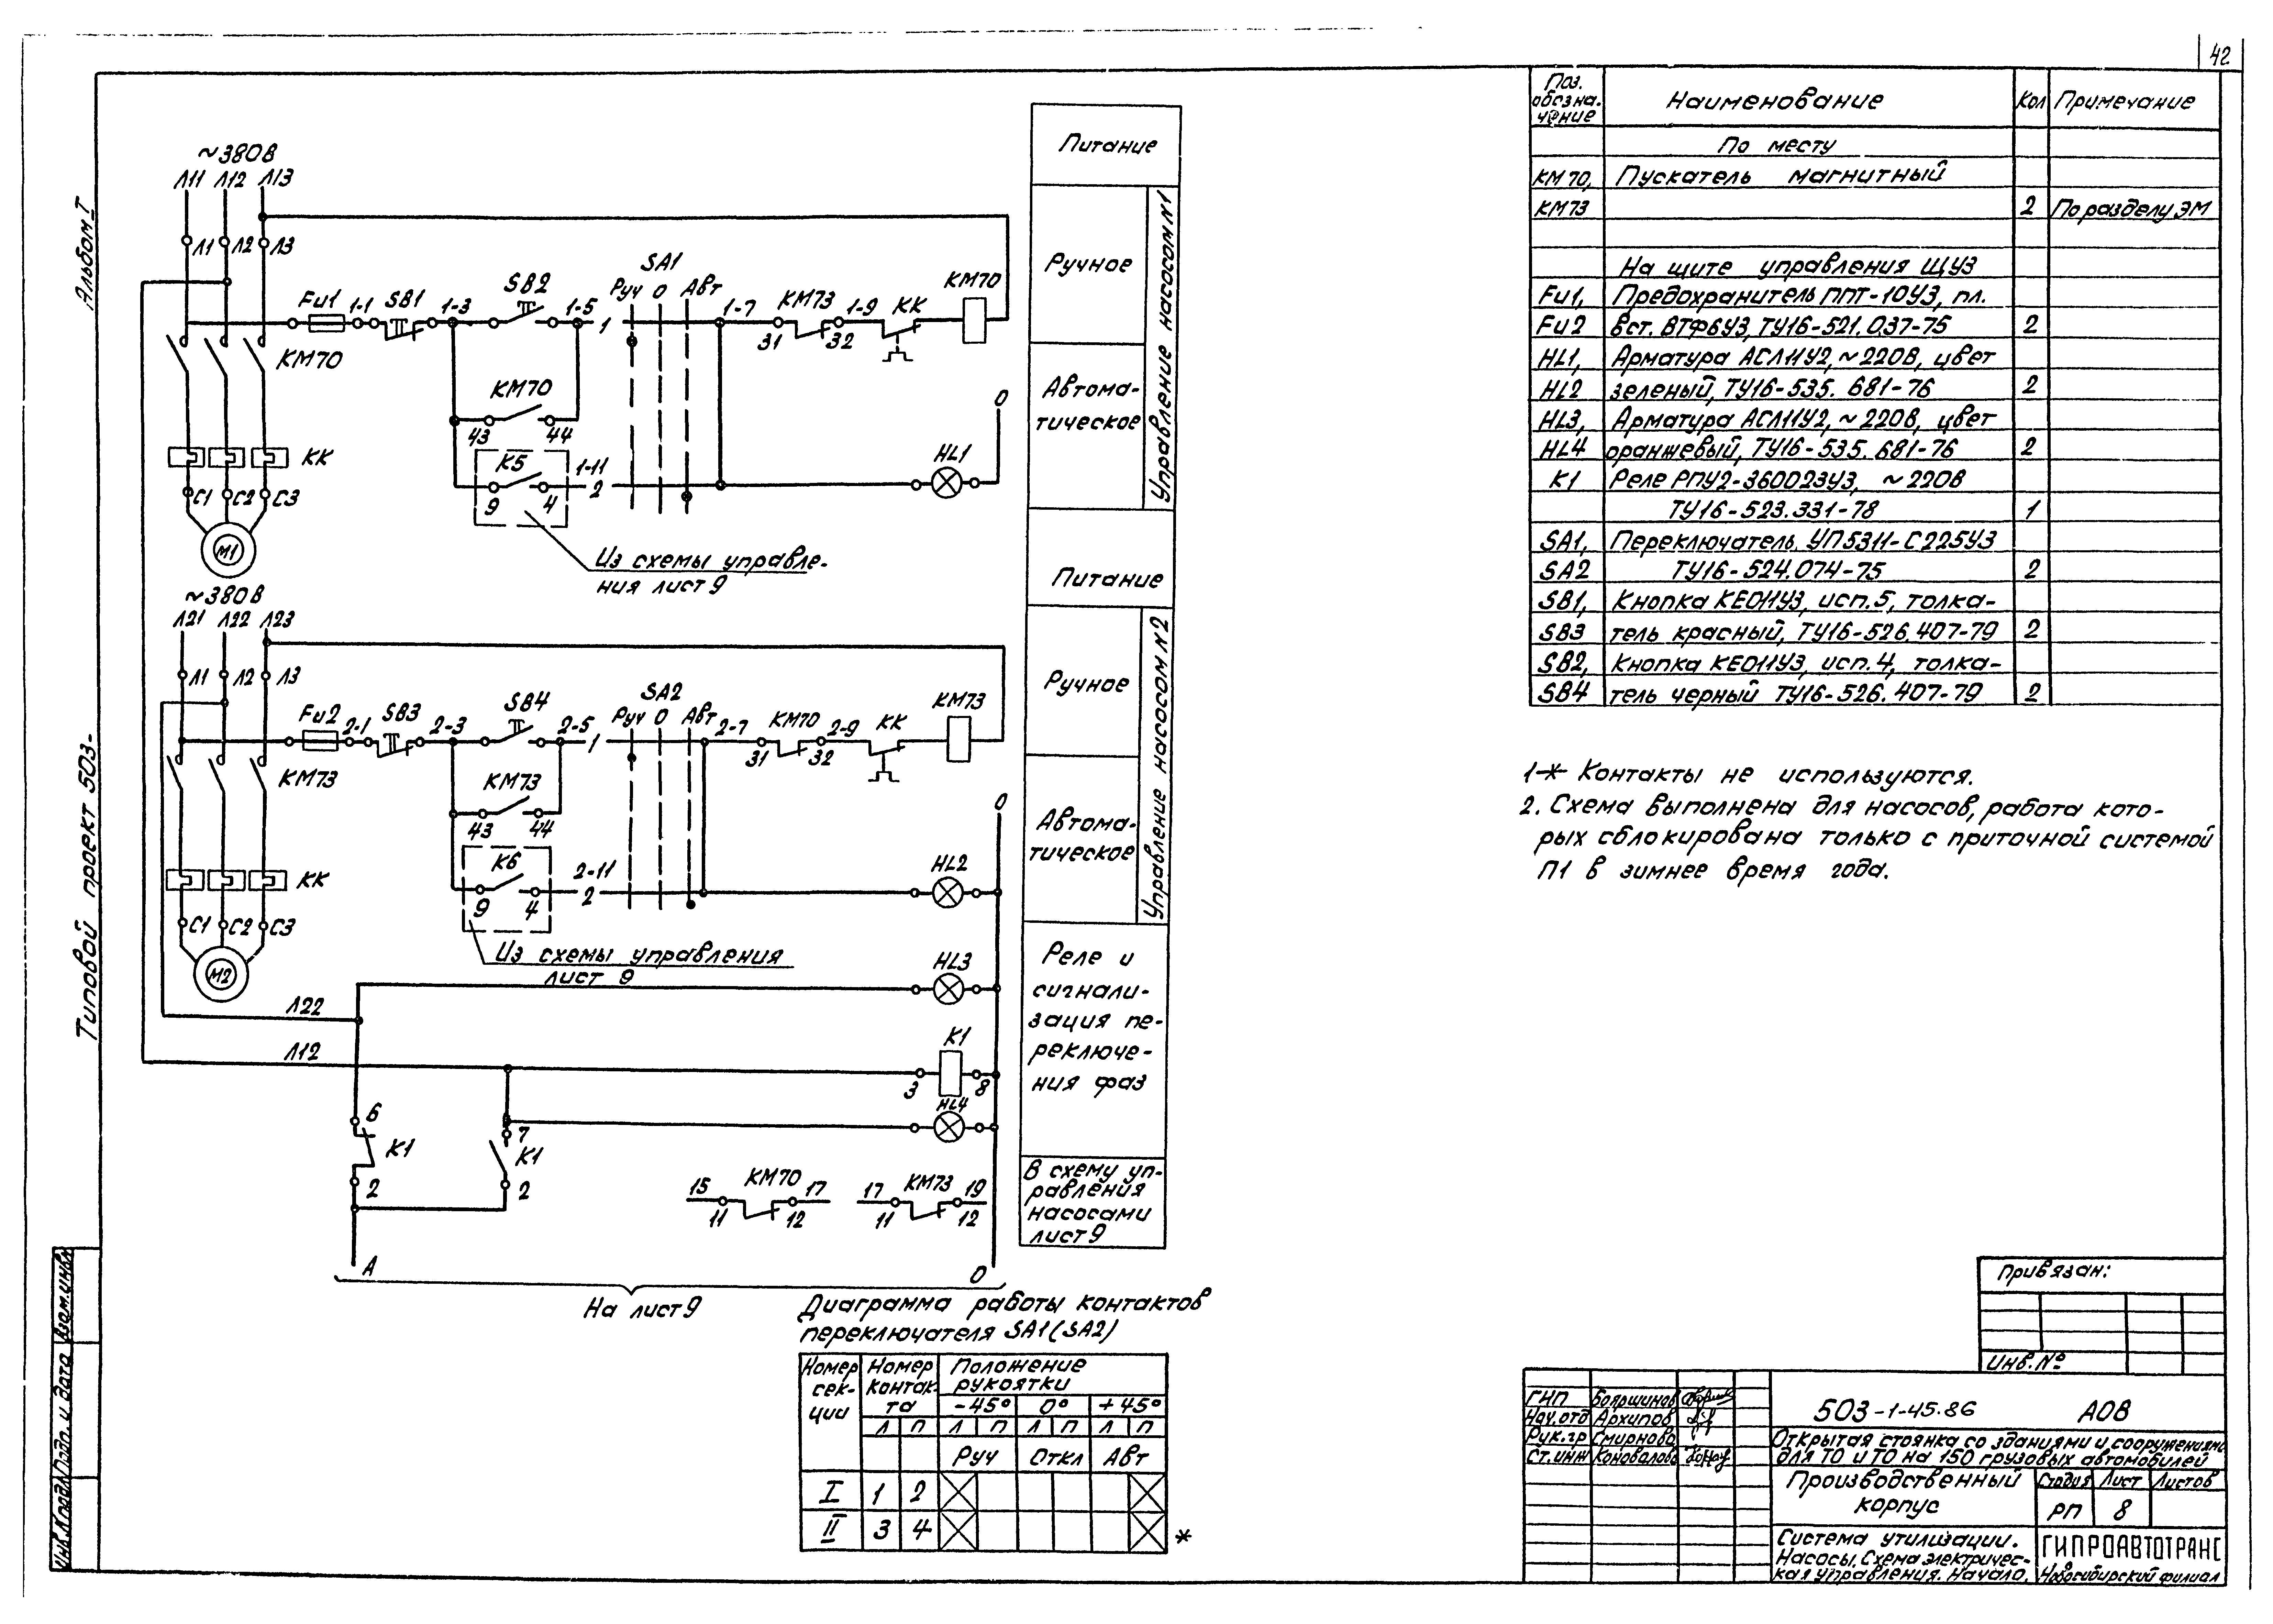 42
Альбом I
Типовой проект 503-
~380В
Л11 Л12 Л13
Л1 Л2 Л3
Fu1 1-1 SB1 1-3 SB2 1-5 1 SA1
Руч О Авт
1-7 КМ73 1-9 КК КМ70
31 32
КМ70
КМ70
43 44
К5 1-11
9 4 2
HL1
О
КК
С1 С2 С3
М1
Из схемы управле-
ния лист 9
~380В
Л21 Л22 Л23
Л1 Л2 Л3
Fu2 2-1 SB3 2-3 SB4 2-5 1 SA2
Руч О Авт
2-7 КМ70 2-9 КК КМ73
31 32
КМ73
КМ73
43 44
К6 2-11
9 4 2
HL2
О
КК
С1 С2 С3
М2
Из схемы управления
лист 9
HL3
Л22
К1
Л12
3 8
HL4
6
К1
2
7
К1
2
15 КМ70 17
11 12
17 КМ73 19
11 12
А О
На лист 9
Питание
Ручное
Автома-
тическое
Управление насосом N1
Питание
Ручное
Автома-
тическое
Управление насосом N2
Реле и
сигнали-
зация пе-
реключе-
ния фаз
В схему уп-
равления
насосами
лист 9
Диаграмма работы контактов
переключателя SA1(SA2)
Номер сек- ции
Номер контак- та
Положение рукоятки
-45° 0° +45°
Л П Л П Л П Л П
Руч Откл Авт
I 1 2
II 3 4 *
Поз. обозна- чение Наименование Кол Примечание
По месту
КМ70, Пускатель магнитный
КМ73 2 По разделу ЭМ
На щите управления ЩУЗ
Fu1, Предохранитель ППТ-10У3, пл.
Fu2 вст. ВТФ6У3, ТУ16-521.037-75 2
HL1, Арматура АСЛ11У2, ~220В, цвет
HL2 зеленый, ТУ16-535.681-76 2
HL3, Арматура АСЛ11У2, ~220В, цвет
HL4 оранжевый, ТУ16-535.681-76 2
К1 Реле РПУ2-360023У3, ~220В
ТУ16-523.331-78 1
SA1, Переключатель УП5311-С225У3
SA2 ТУ16-524.074-75 2
SB1, Кнопка КЕ011У3, исп.5, толка-
SB3 тель красный, ТУ16-526.407-79 2
SB2, Кнопка КЕ011У3, исп.4, толка-
SB4 тель черный ТУ16-526.407-79 2
1-* Контакты не используются.
2. Схема выполнена для насосов, работа кото-
рых сблокирована только с приточной системой
П1 в зимнее время года.
Привязан:
Инв.№
ГИП Бояршинов
Нач.отд Архипов
Рук.гр Смирнова
Ст.инж Коновалова
503-1-45.86 АОВ
Открытая стоянка со зданиями и сооружениями
для ТО и ТО на 150 грузовых автомобилей
Производственный
корпус
Стадия Лист Листов
РП 8
Система утилизации.
Насосы. Схема электричес-
кая управления. Начало.
ГИПРОАВТОТРАНС
Новосибирский филиал
Взам.инв.
Подп. и дата
Инв.№ подл